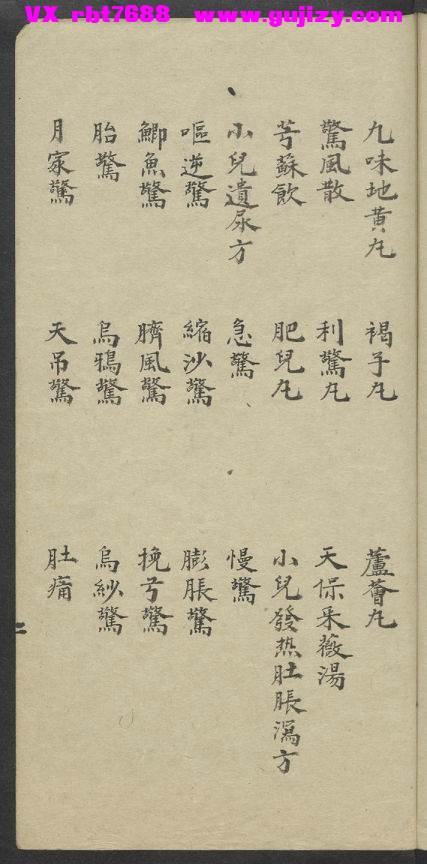 VX rbt7688 www.gujizy.com
九味地黃九 褐子九 蘆薈九
驚風散 利驚九 天保采薇湯
芎蘇飲 肥兒九 小兒發热肚脹瀉方
小兒遺尿方 急驚 慢驚
嘔逆驚 縮沙驚 膨脹驚
鯽魚驚 臍風驚 挽弓驚
胎驚 烏鴉驚 烏紗驚
月家驚 天吊驚 肚痛
二